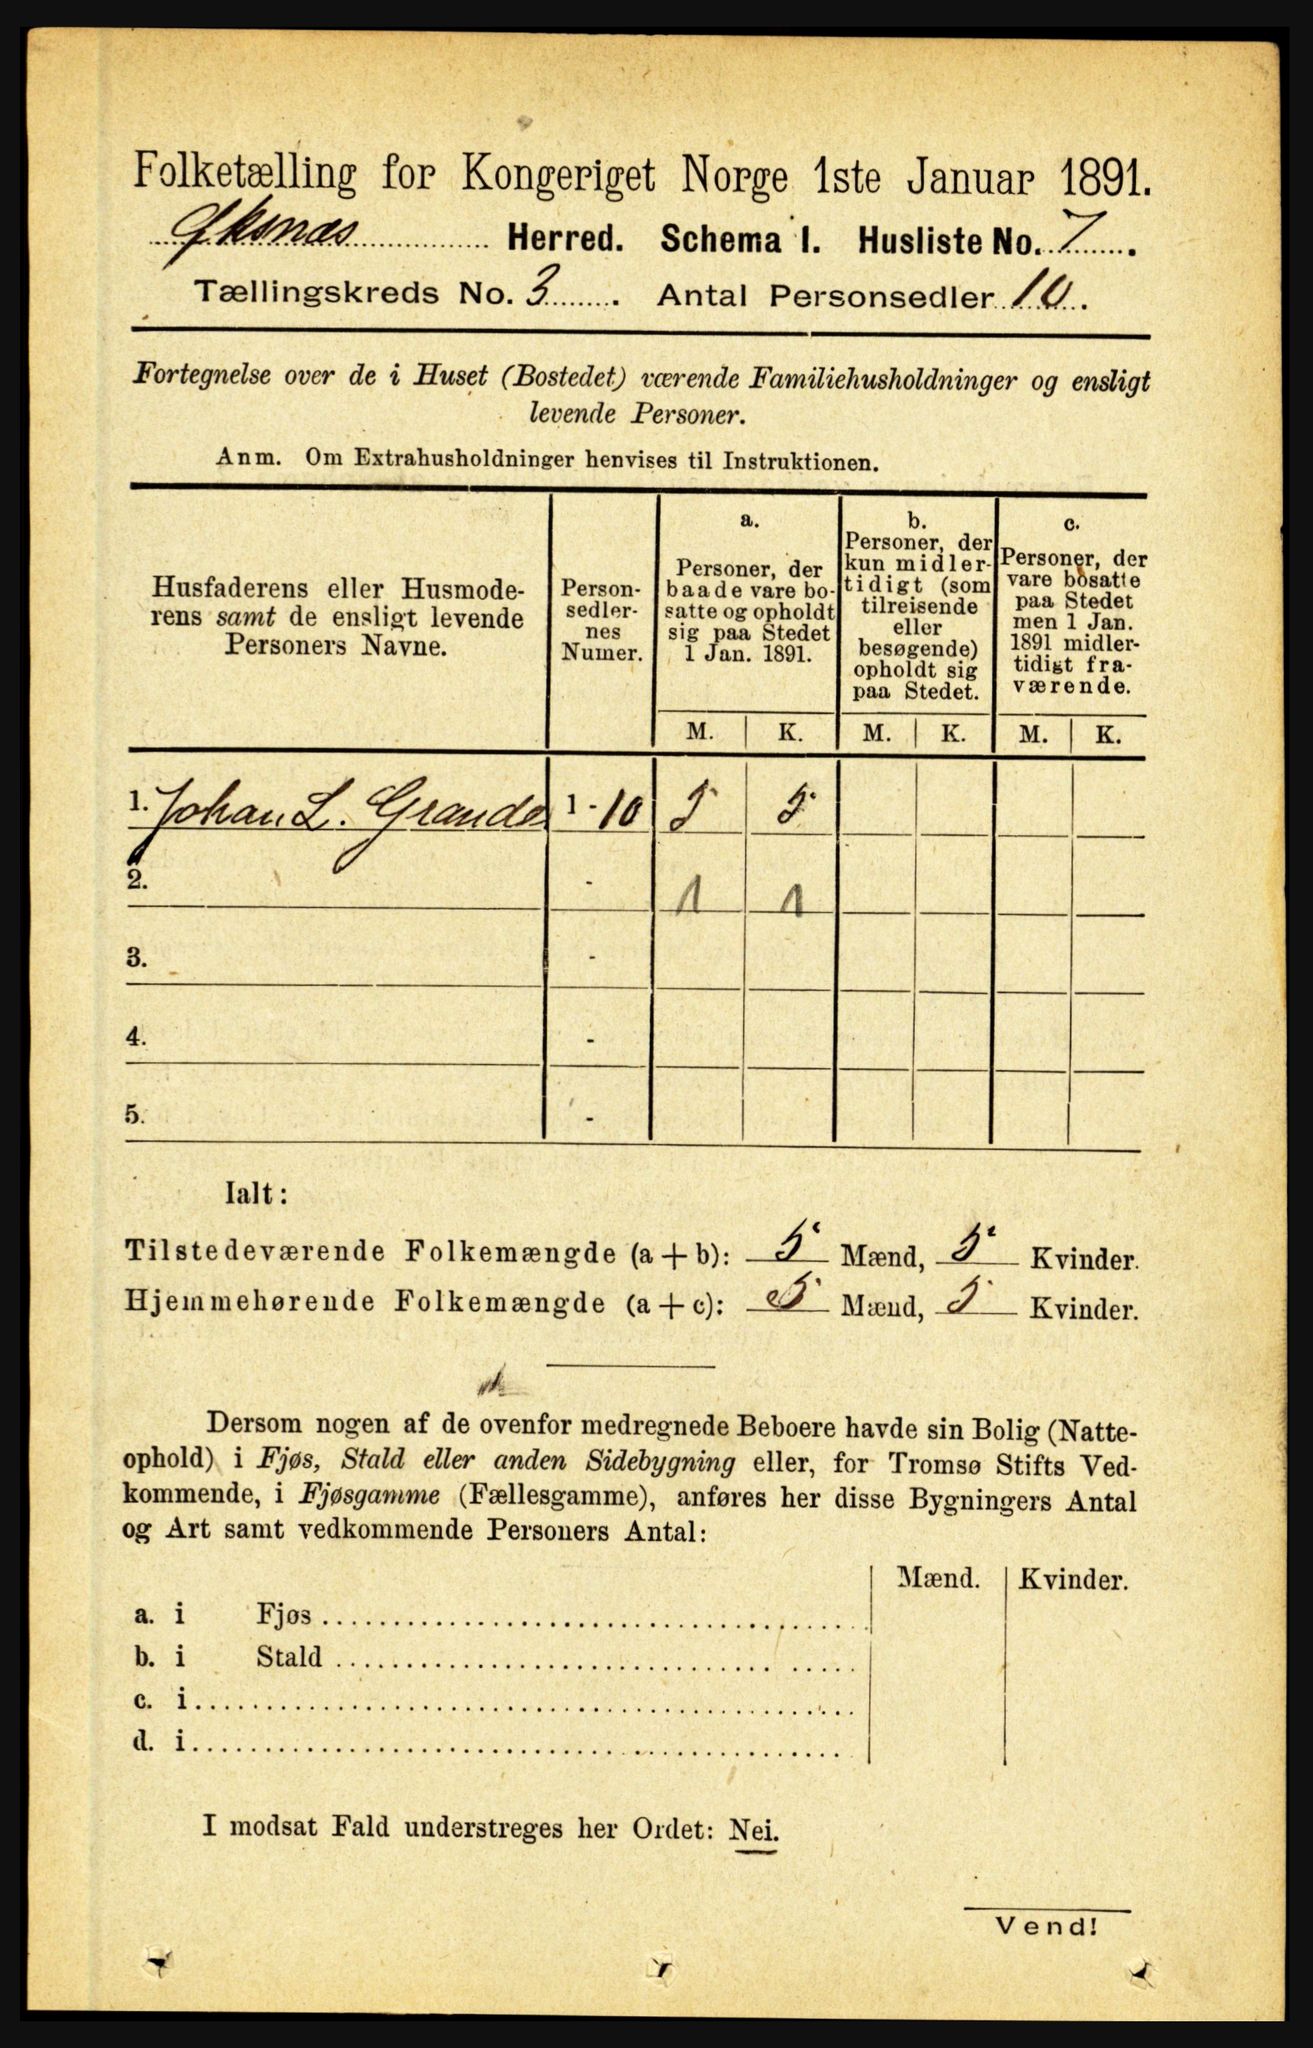 Folketælling for Kongeriget Norge 1ste Januar 1891.
Øksnæs Herred. Schema I. Husliste No. 7.
Tællingskreds No. 3. Antal Personsedler 10.
Fortegnelse over de i Huset (Bostedet) værende Familiehusholdninger og ensligt
levende Personer.
Anm. Om Extrahusholdninger henvises til Instruktionen.
Husfaderens eller Husmode-
rens samt de ensligt levende
Personers Navne.
Person-
sedler-
nes
Numer.
a.
Personer, der
baade vare bo-
satte og opholdt
sig paa Stedet
1 Jan. 1891.
b.
Personer, der
kun midler-
tidigt (som
tilreisende
eller
besøgende)
opholdt sig
paa Stedet.
c.
Personer, der
vare bosatte
paa Stedet
men 1 Jan.
1891 midler-
tidigt fra-
værende.
M. K. M. K. M. K.
1. Johan L. Grande 1-10 5 5
2. - 1 1
3. -
4. -
5. -
Ialt:
Tilstedeværende Folkemængde (a + b): 5 Mænd, 5 Kvinder.
Hjemmehørende Folkemængde (a + c): 5 Mænd, 5 Kvinder.
Dersom nogen af de ovenfor medregnede Beboere havde sin Bolig (Natte-
ophold) i Fjøs, Stald eller anden Sidebygning eller, for Tromsø Stifts Ved-
kommende, i Fjøsgamme (Fællesgamme), anføres her disse Bygningers Antal
og Art samt vedkommende Personers Antal:
Mænd. Kvinder.
a. i Fjøs
b. i Stald
c. i
d. i
I modsat Fald understreges her Ordet: Nei.
Vend!